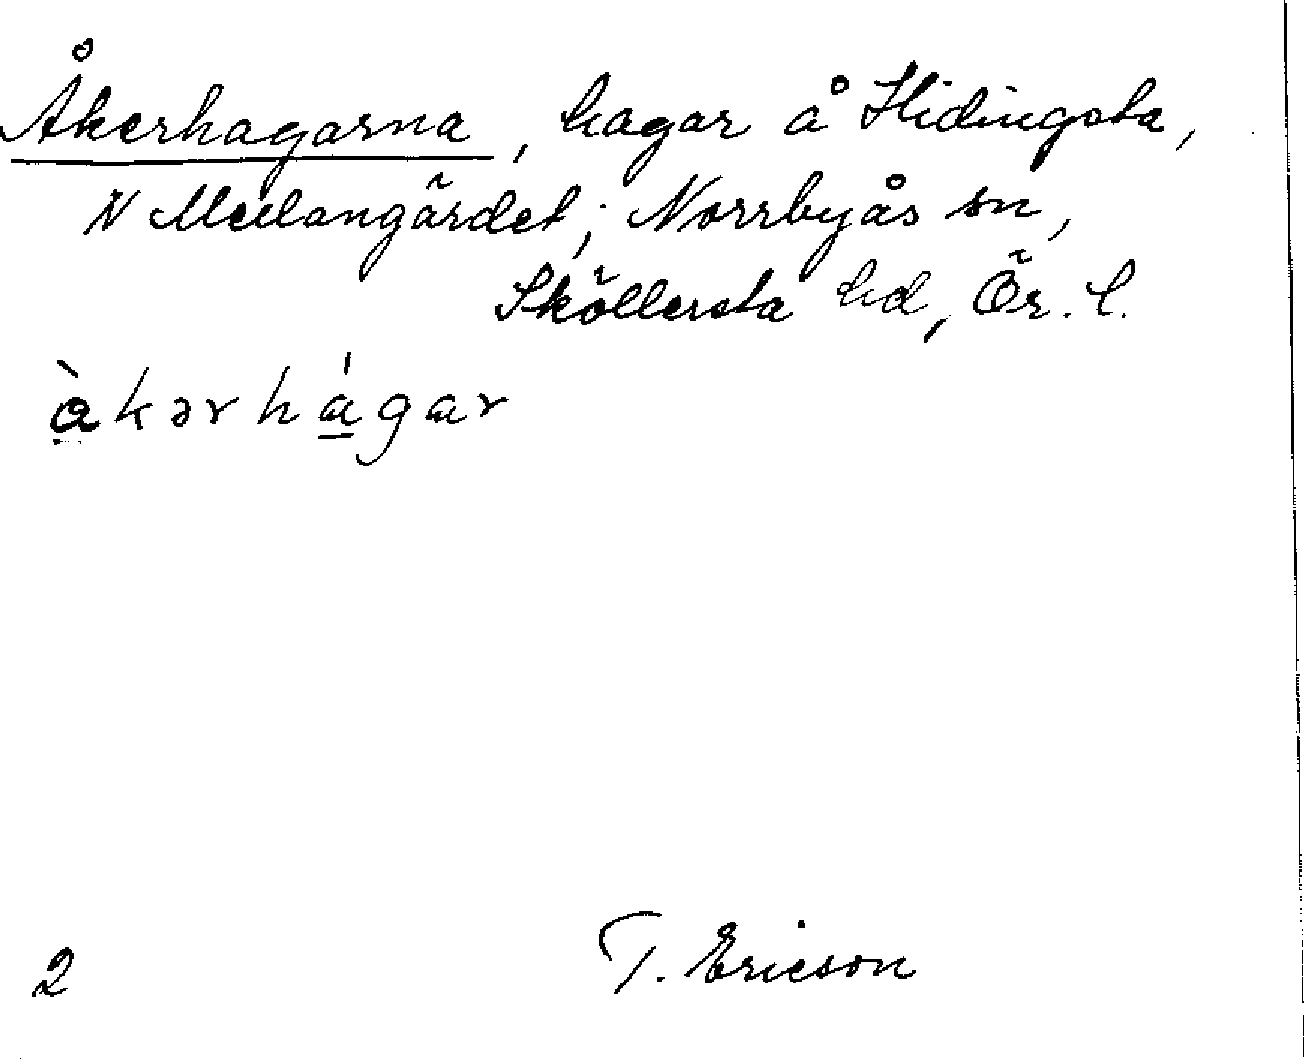 Åkerhagarna, hagar å Hidingsta,
N Mellangärdet; Norrbyås sn,
Sköllersta hd, Ör. l.
àkərhágar
2 T. Ericson